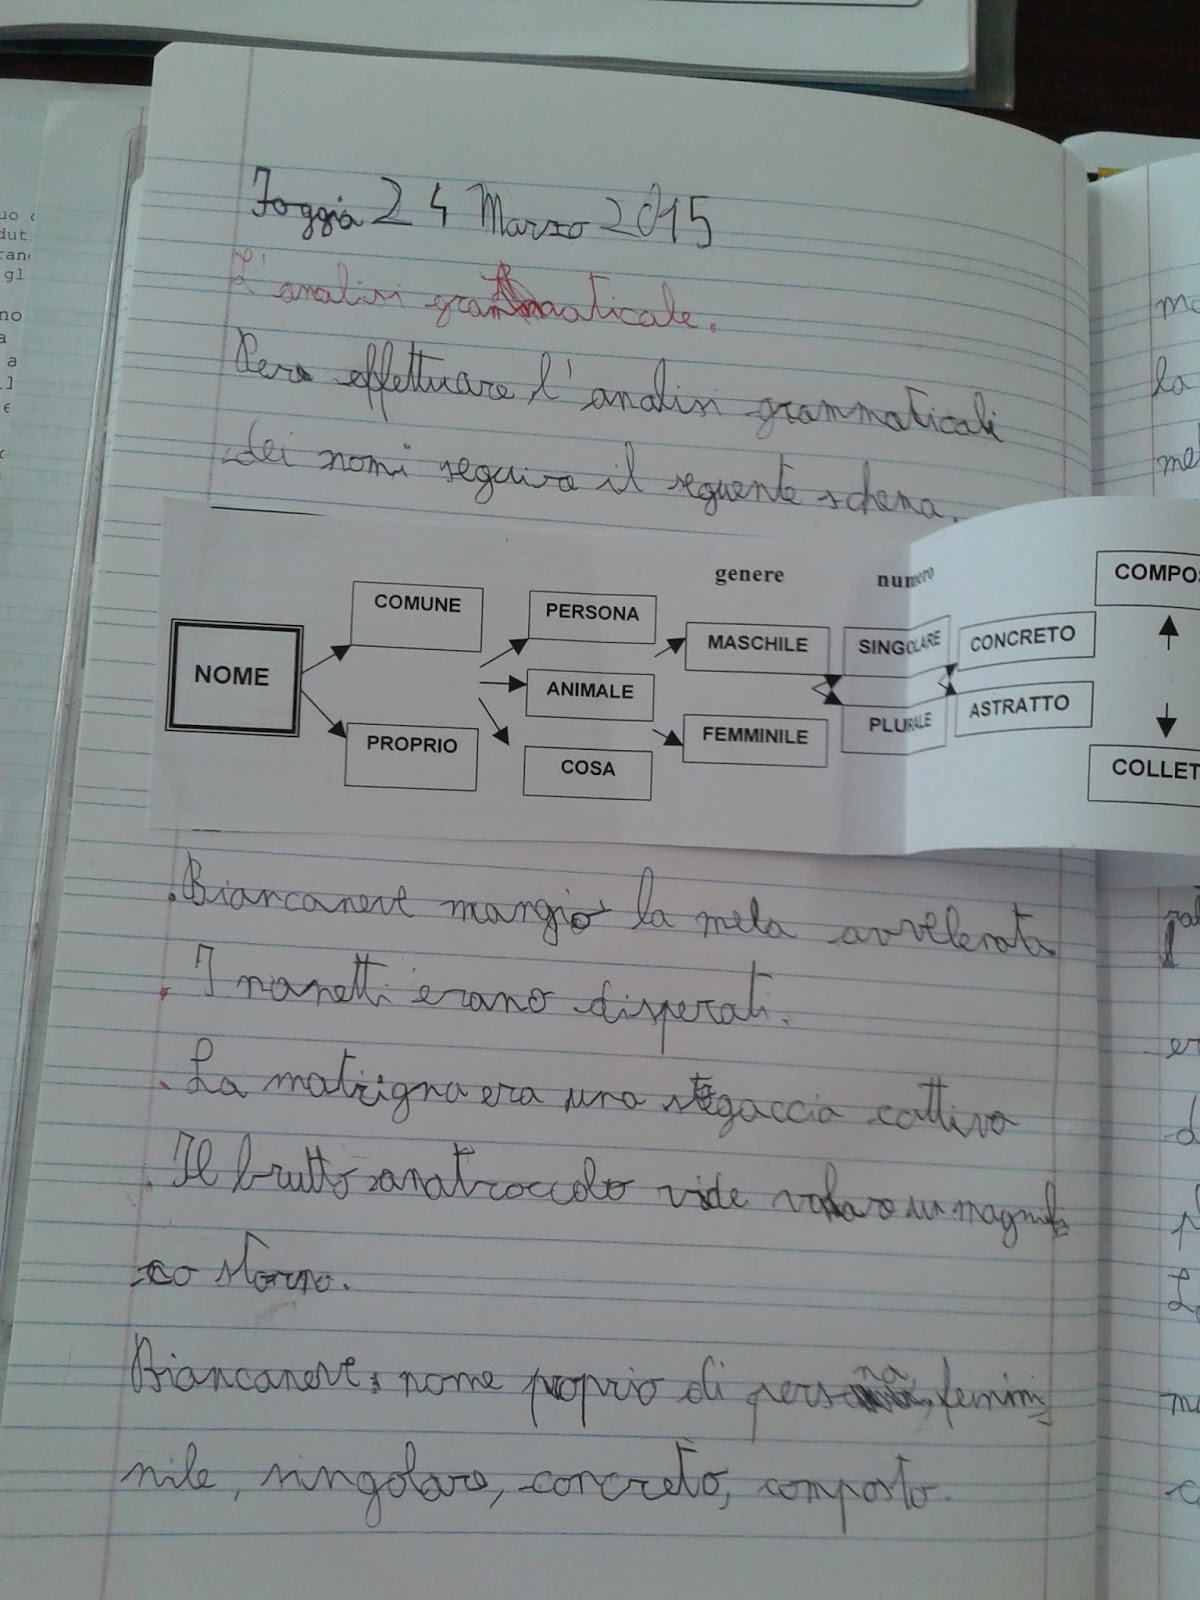 Foggia 24 Marzo 2015
L'analisi grammaticale.
Per effettuare l'analisi grammaticali
dei nomi seguire il seguente schema.
genere numero
COMUNE PERSONA MASCHILE SINGOLARE CONCRETO COMPOS
NOME ANIMALE
PROPRIO COSA FEMMINILE PLURALE ASTRATTO COLLET
.Biancaneve mangiò la mela avvelenata
. I nanetti erano disperati.
. La matrigna era una stregaccia cattiva
. Il brutto anatroccolo vide volare un magnifi
co stormo.
Biancaneve: nome proprio di persona, femmi
nile, singolare, concreto, composto.
uo
dut
ran
gl
no
a
a
e
ma
la
me
er
d